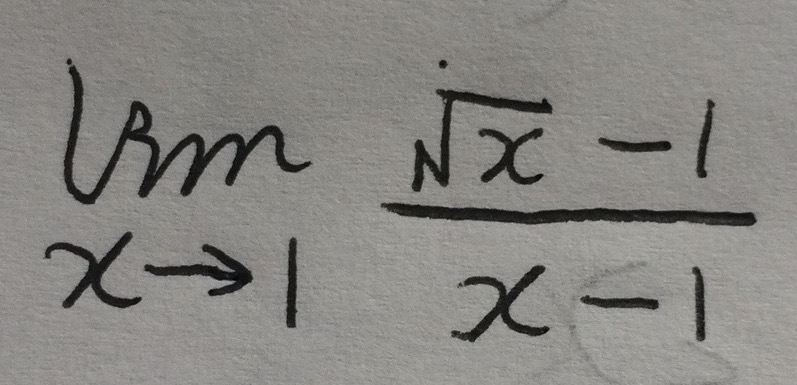 lim √x - 1
x → 1 x - 1